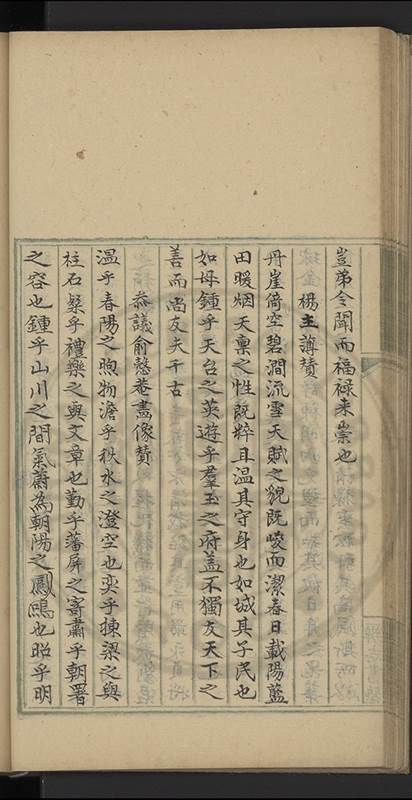 豈弟令聞而福祿来崇也
楊主薄賛
丹崖倚空碧澗流雪天賦之貌既峻而潔春日載陽藍
田暖烟天稟之性既粹且温其守身也如城其子民也
如母鍾乎天台之英遊乎羣玉之府蓋不獨友天下之
善而尚友夫千古
恭議俞慤菴畫像賛
温乎春陽之煦物澹乎秋水之澄空也奕乎棟梁之與
柱石粲乎禮樂之與文章也勤乎藩屏之寄肅乎朝署
之容也鍾乎山川之間氣蔚為朝陽之鳳鴟也昭乎明